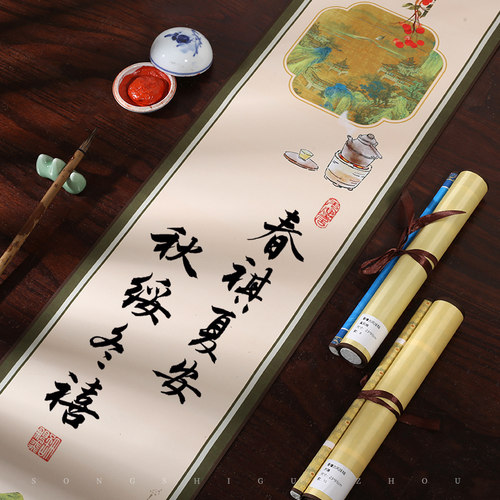 春祺夏安
秋绥冬禧
SONGSHIGUIZHOU